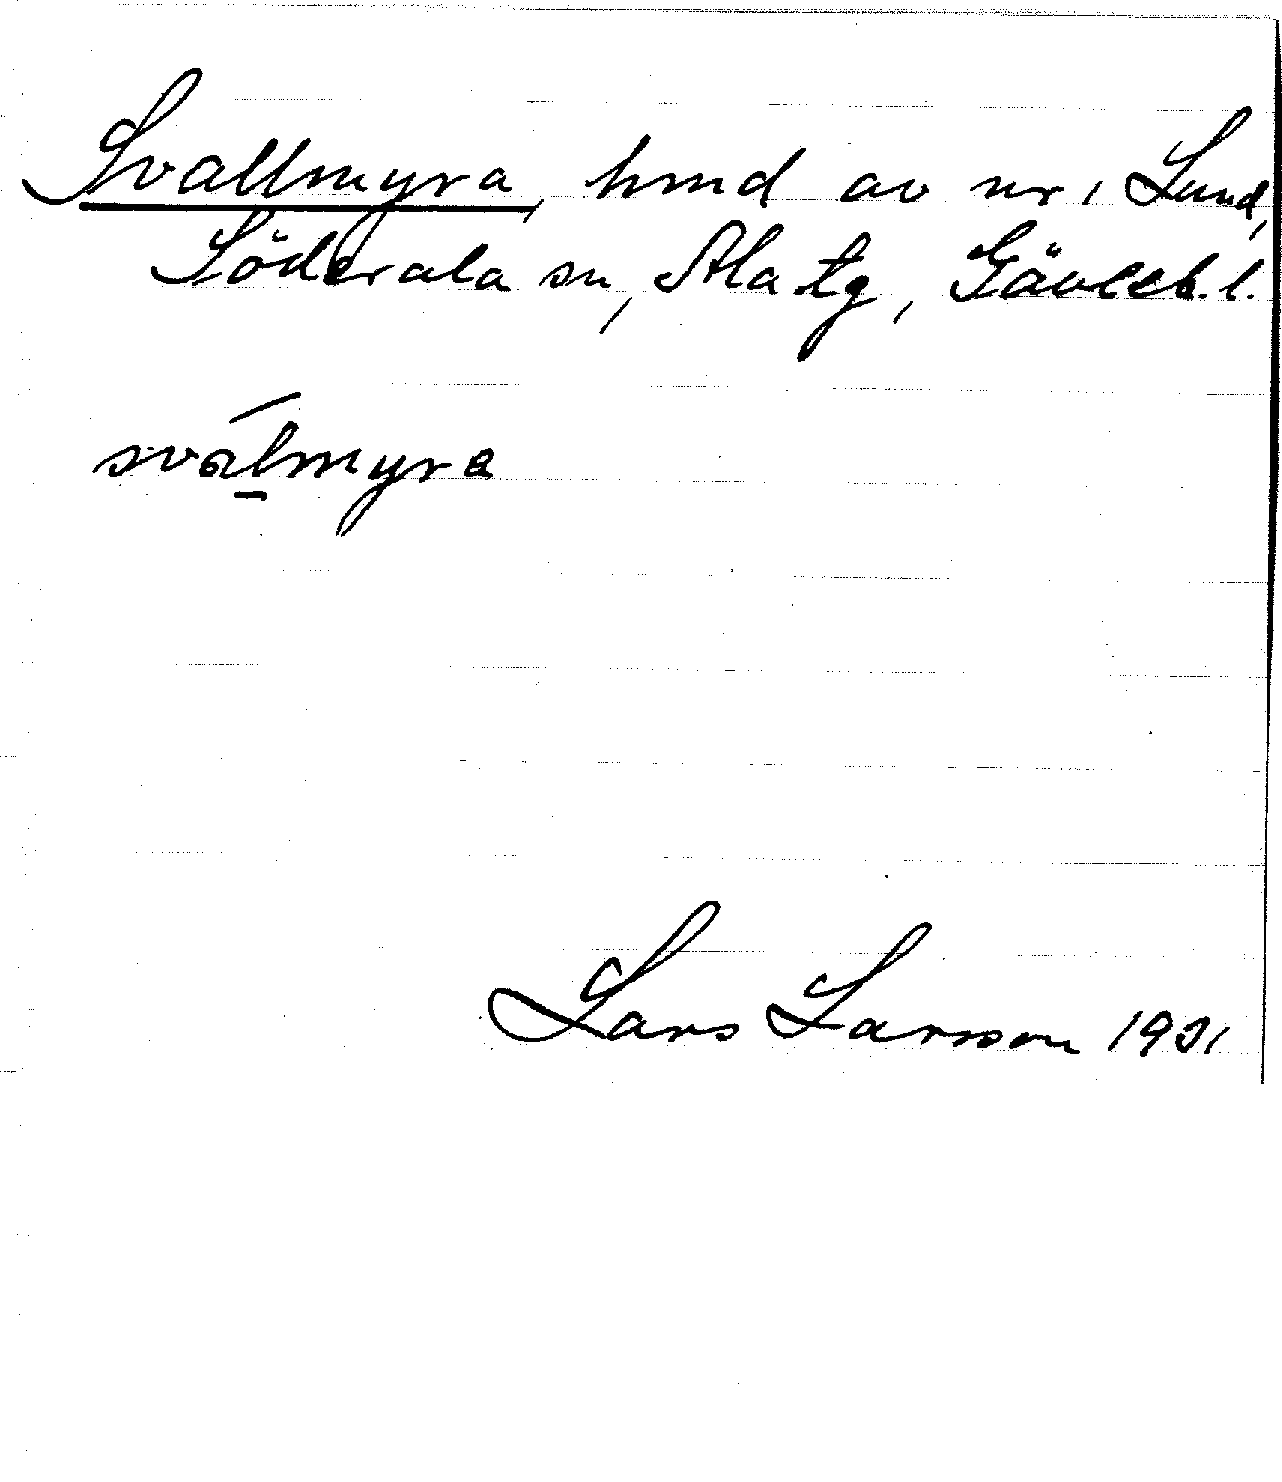 Svallmyra, hmd av nr 1 Lund,
Söderala sn, Ala tg, Gävleb. l.
sválmyra
Lars Larsson 1931